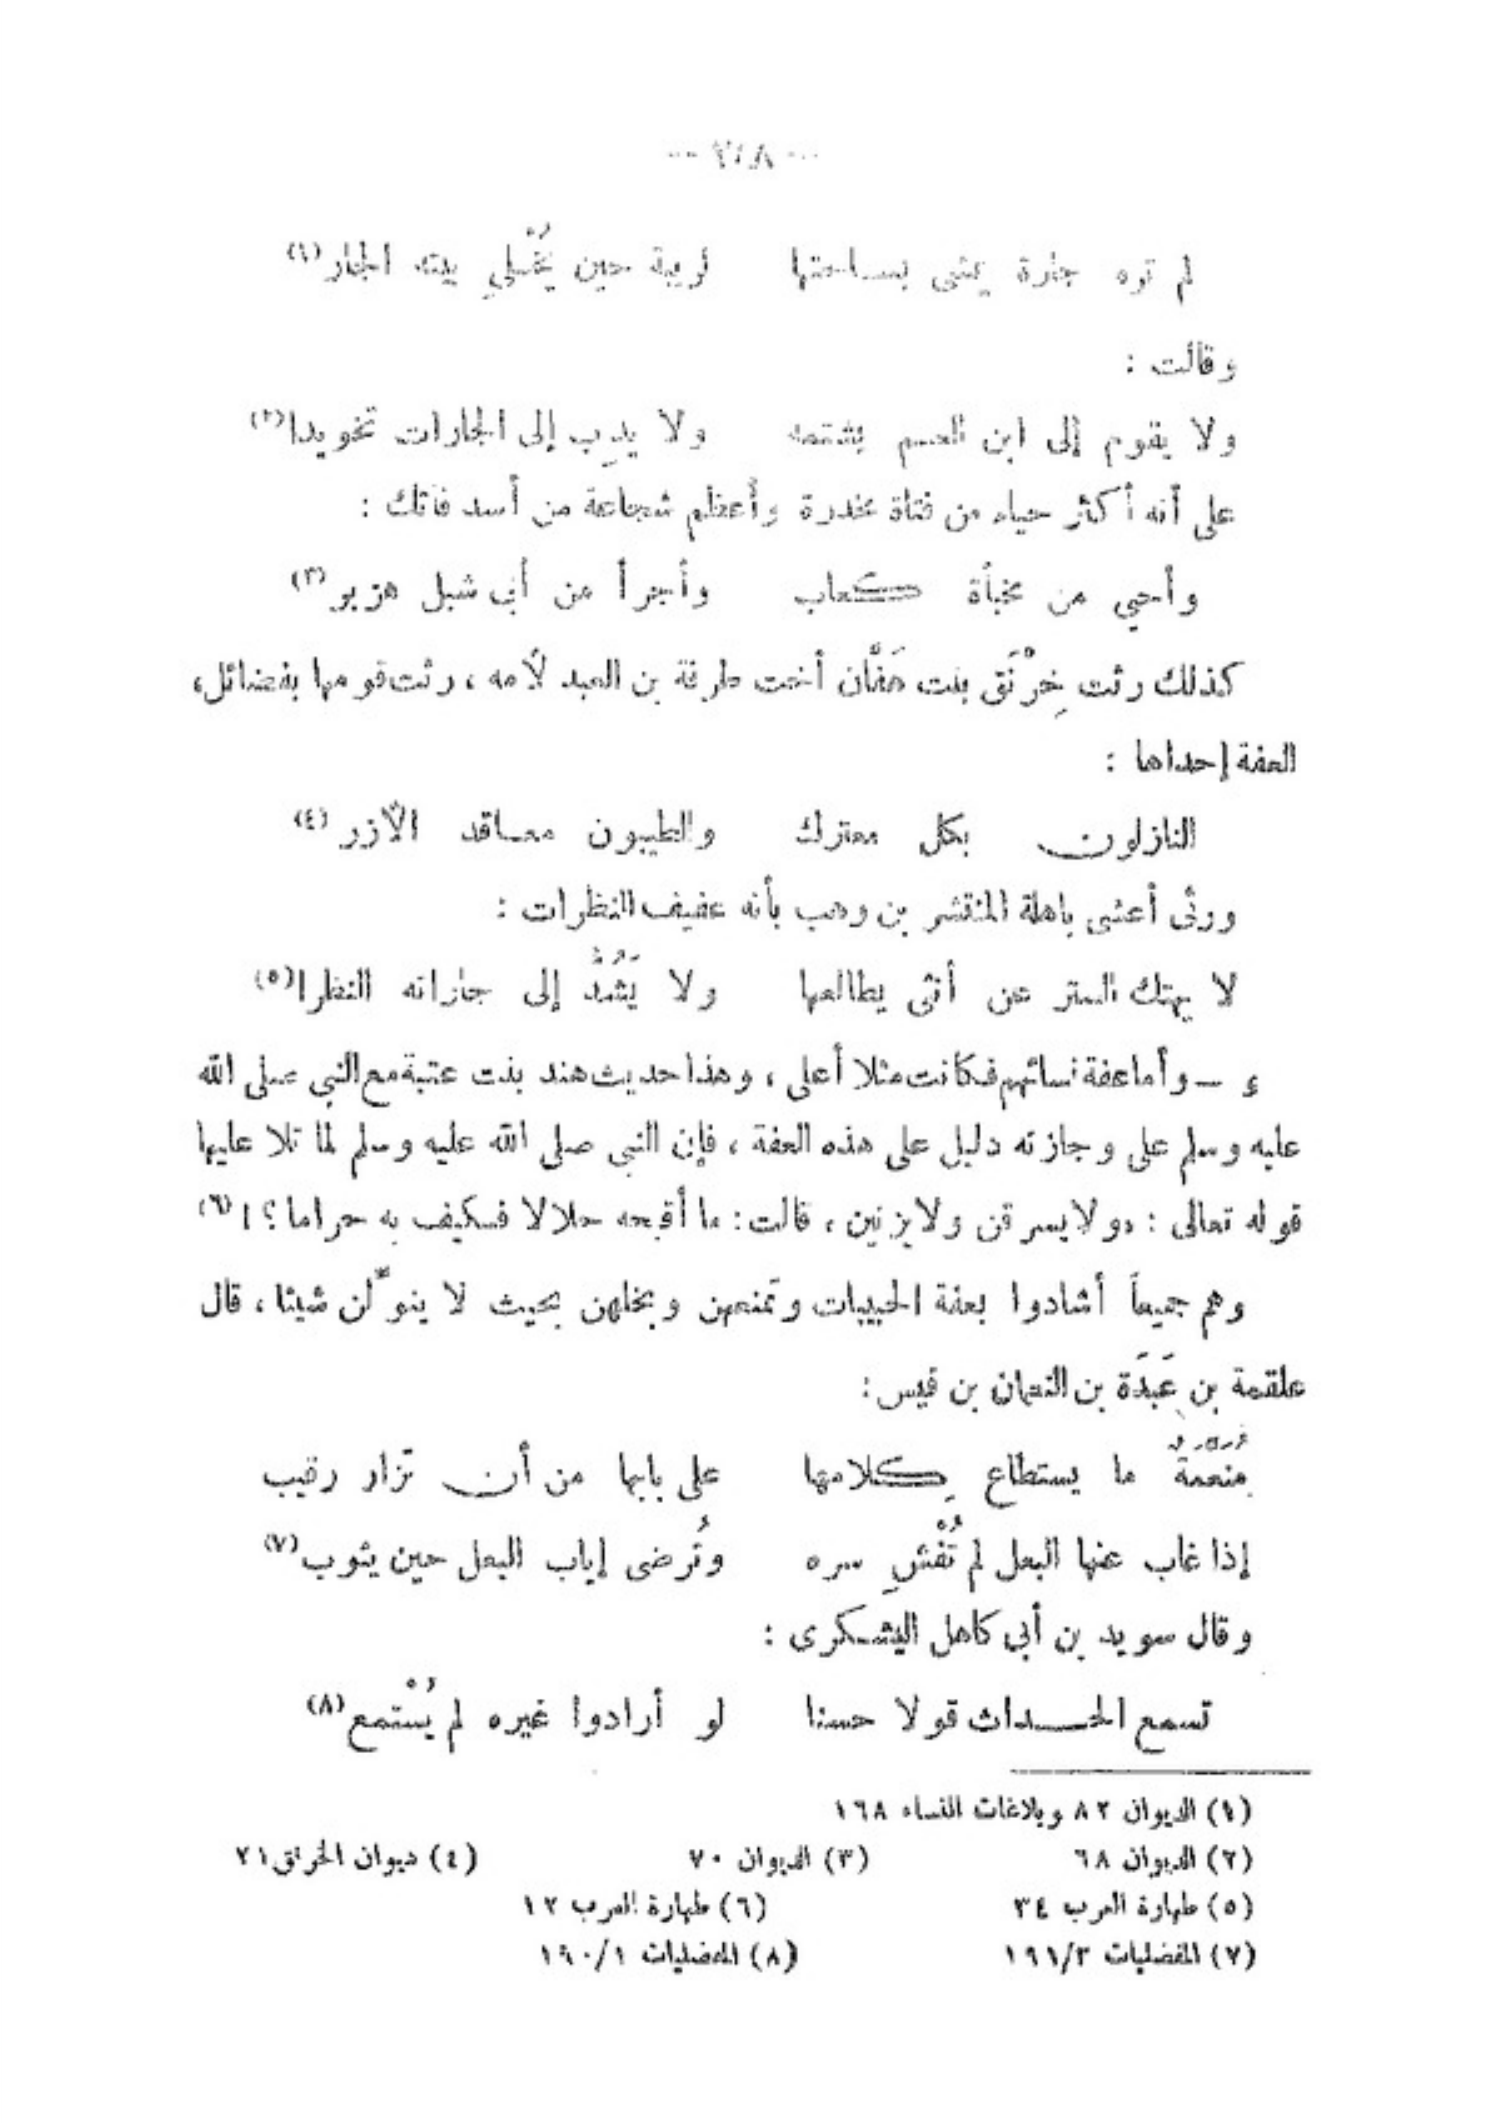 لم تره جارة يمشى بساحتها لريبة حين يُخْلِي بيته الجار (١)
وقالت :
ولا يقوم إلى ابن العم يشتمه ولا يدِب إلى الجارات تخويدا (٢)
على أنه أكثر حياء من فتاة مخدرة وأعظم شجاعة من أسد فاتك :
وأحيي من مخبأة كعاب وأجرأ من أبى شبل هزبر (٣)
كذلك رثت خِرْنَق بنت هَفَّان أخت طرفة بن العبد لأمه ، رثت قومها بفضائل،
العفة إحداها :
النازلون بكل معترك والطيبون معاقد الأزر (٤)
ورثى أعشى باهلة المنتشر بن وهب بأنه عفيف النظرات :
لا يهتك الستر عن أنثى يطالعها ولا يَشُدُّ إلى جاراته النظرا (٥)
ء — وأما عفة نسائهم فكانت مثلا أعلى ، وهذا حديث هند بنت عتبة مع النبي صلى الله
عليه وسلم على وجازته دليل على هذه العفة ، فإن النبي صلى الله عليه وسلم لما تلا عليها
قوله تعالى : «ولا يسرقن ولا يزنين ، قالت : ما أقبحه حلالا فكيف به حراما ؟ ! (٦)
وهم جميعاً أشادوا بعفة الحبيبات وتمنعهن وبخلهن بحيث لا ينوّلن شيئا ، قال
علقمة بن عَبَدَة بن النعمان بن قيس :
منعمة ما يستطاع كلامها على بابها من أن تزار رقيب
إذا غاب عنها البعل لم تُفْشِ سره وتُرضى إياب البعل حين يئوب (٧)
وقال سويد بن أبى كاهل اليشكرى :
تسمع الحداث قولا حسنا لو أرادوا غيره لم يُسْتمع (٨)
(١) الديوان ٨٢ وبلاغات النساء ١٦٨
(٢) الديوان ٦٨ (٣) الديوان ٧٠ (٤) ديوان الخرنق ٢١
(٥) طهارة العرب ٣٤ (٦) طهارة العرب ١٢
(٧) المفضليات ١٩١/٣ (٨) المفضليات ١٩٠/١